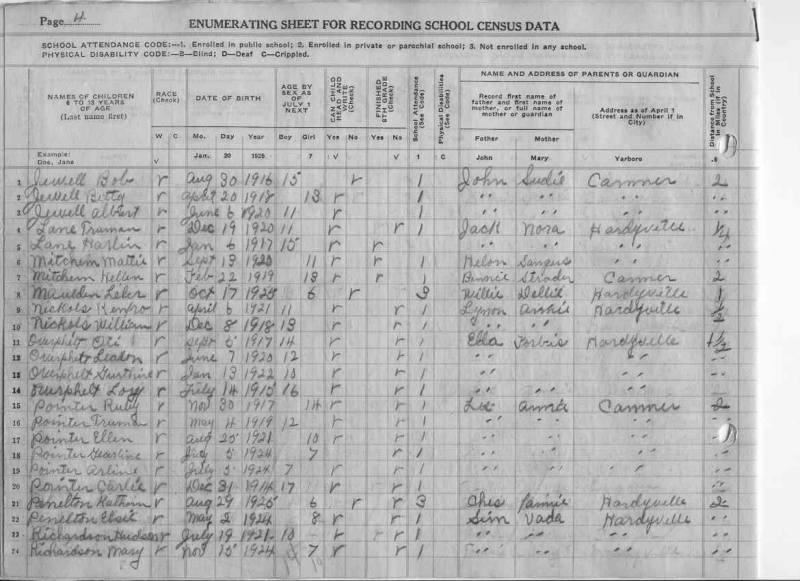 Page 4
ENUMERATING SHEET FOR RECORDING SCHOOL CENSUS DATA
SCHOOL ATTENDANCE CODE:—1. Enrolled in public school; 2. Enrolled in private or parochial school; 3. Not enrolled in any school.
PHYSICAL DISABILITY CODE:—B—Blind; D—Deaf C—Crippled.
NAMES OF CHILDREN 6 TO 18 YEARS OF AGE (Last name first) RACE (Check) DATE OF BIRTH AGE BY SEX AS OF JULY 1 NEXT CAN CHILD READ AND WRITE (Check) FINISHED 8TH GRADE (Check) School Attendance (See Code) Physical Disabilities (See Code) NAME AND ADDRESS OF PARENTS OR GUARDIAN Distance from School in Miles (if in Country)
Record first name of father and first name of mother, or full name of mother or guardian Address as of April 1 (Street and Number if in City)
W C Mo. Day Year Boy Girl Yes No Yes No Father Mother
Example: Doe, Jane V Jan. 20 1925 7 V V 1 C John Mary Yarboro .8
1 Jewell Bob r Aug 30 1916 15 r 1 John Sudie Canmer 2
2 Jewell Betty r April 20 1918 13 r 1 " " " " " " "
3 Jewell Albert r June 6 1920 11 r 1 " " " " " " "
4 Lane Truman r Dec 19 1920 11 r r 1 Jack Nora Hardyville
5 Lane Harlin r Jan 6 1917 15 r r " " " " " "
6 Mitchem Mattie r Sept 13 1920 11 r r 1 Helon " "
7 Mitchem Hellen r Feb 22 1919 13 r r 1 Strader Canmer 2
8 r Oct 17 1925 6 r 3 Willie Dellie Hardyville 1
9 Nickols r April 6 1921 11 r r 1 Hardyville 1/2
10 Nickols William r Dec 8 1918 13 r r 1 " " " " " " "
11 r Sept 5 1917 14 r r 1 Hardyville 1 1/2
12 r June 7 1920 12 r r 1 " " " "
13 r Jan 13 1922 10 r r 1 " " " " " "
14 r July 14 1915 16 r r 1 " " " " " "
15 Pointer Ruby r Nov 30 1917 14 r r 1 Canmer 2
16 Pointer r May 4 1919 12 r r 1 " " " " " "
17 Pointer Ellen r Aug 25 1921 10 r r 1 " " " " " "
18 Pointer r July 5 1924 7 r 1 " " " " " "
19 Pointer Arline r July 5 1924 7 r r 1 " " " " " "
20 Pointer r Dec 31 1914 17 r r 1
21 r Aug 29 1925 6 r r 3 Ches Hardyville 2
22 r May 2 1924 8 r r 1 Sim Vada Hardyville
23 Richardson Hudson r July 19 1921 10 r r 1
24 Richardson Mary r Nov 15 1924 7 r r 1